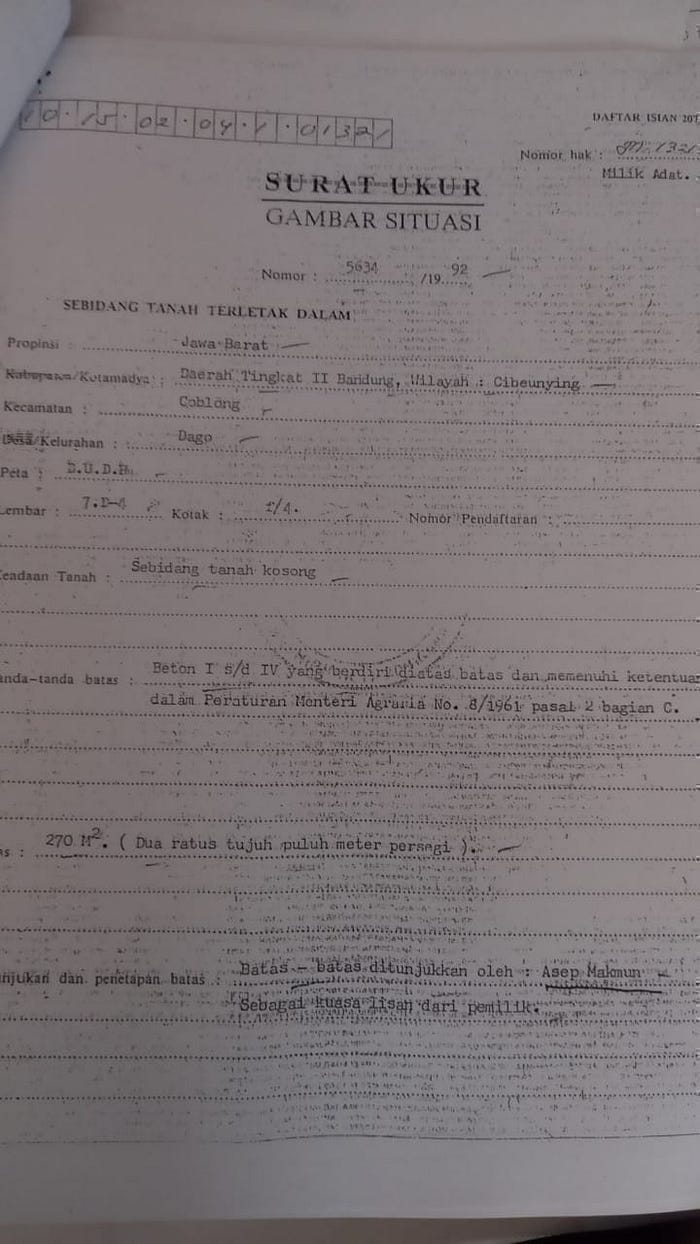 10.15.02.04.1.01321
DAFTAR ISIAN 207
Nomor hak :
Milik Adat.
SURAT UKUR
GAMBAR SITUASI
Nomor : 5634 /19 92
SEBIDANG TANAH TERLETAK DALAM
Propinsi : Jawa Barat
Kabupaten/Kotamadya : Daerah Tingkat II Bandung, Wilayah : Cibeunying
Kecamatan : Coblong
Desa/Kelurahan : Dago
Peta :
Lembar : Kotak : Nomor Pendaftaran :
eadaan Tanah : Sebidang tanah kosong
anda-tanda batas : Beton I s/d IV yang berdiri diatas batas dan memenuhi ketentuan
dalam Peraturan Menteri Agraria No. 8/1961 pasal 2 bagian C.
as : 270 M². ( Dua ratus tujuh puluh meter persegi ).
njukan dan penetapan batas : Batas - batas ditunjukkan oleh : Asep Makmun
Sebagai kuasa lisan dari pemilik.